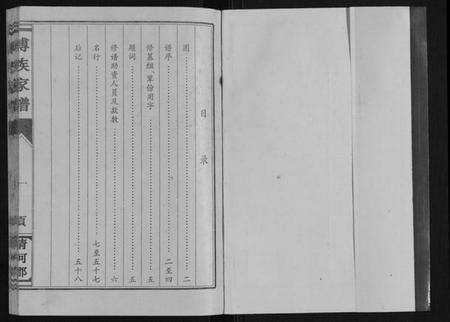 目录
图……二
谱序……二至四
修墓组、军俭用字……五
题词……五
修谱助资人员及款数……六
名行……七至五十七
后记……五十八
傅族家谱
一
页
清河郡